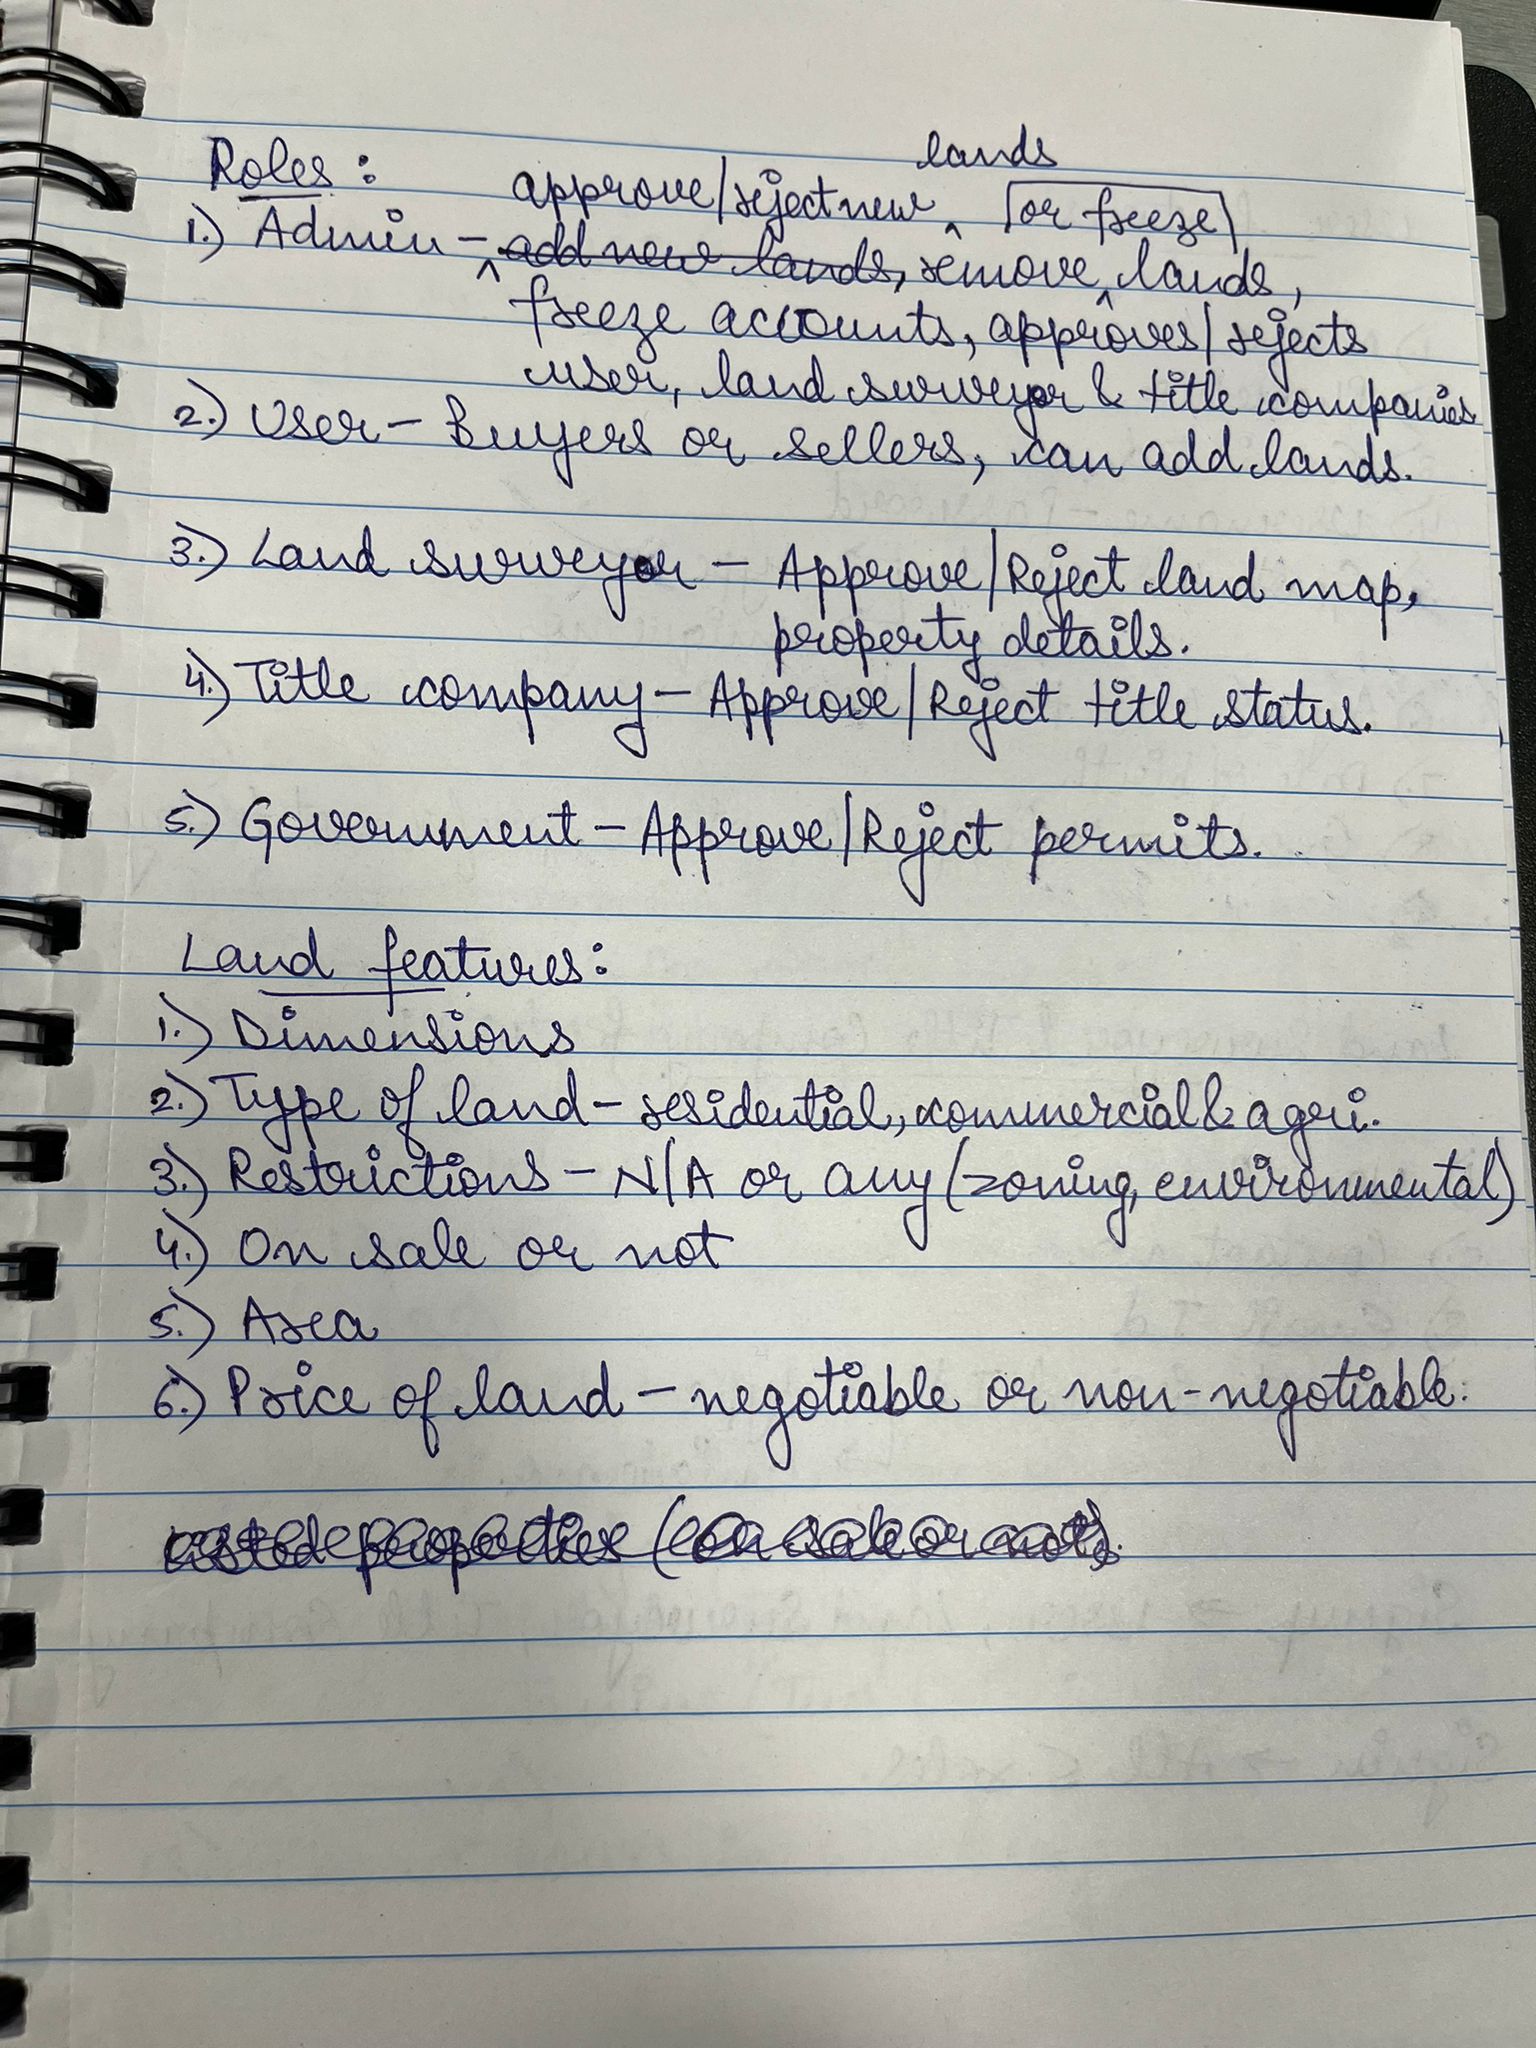 Roles :
lands
approve/reject new or freeze
1.) Admin - add new lands, remove lands,
freeze accounts, approves/rejects
user, land surveyor & title companies
2.) User - Buyers or sellers, can add lands.
3.) Land surveyor - Approve/Reject land map,
property details.
4.) Title company - Approve/Reject title status.
5.) Government - Approve/Reject permits.
Land features:
1.) Dimensions
2.) Type of land - residential, commercial & agri.
3.) Restrictions - N/A or any (zoning, environmental)
4.) On sale or not
5.) Area
6.) Price of land - negotiable or non-negotiable.
properties (on sale or not)